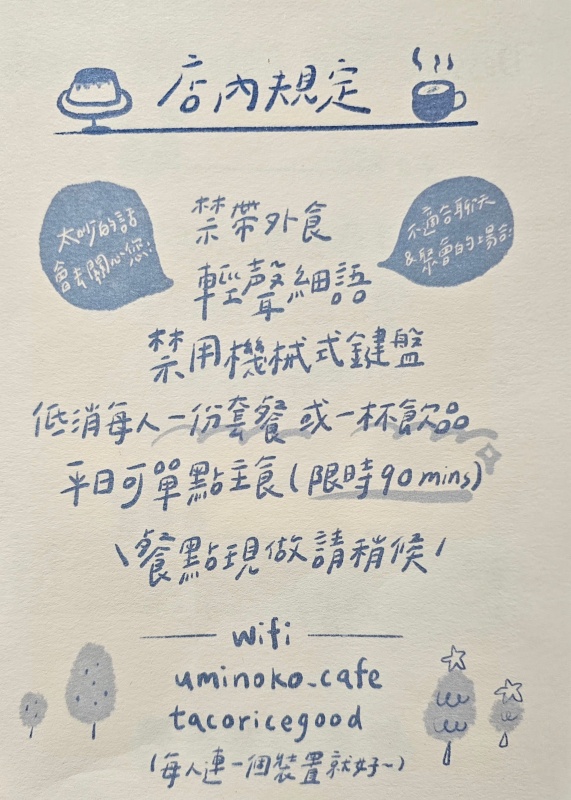 店內規定
太吵的話
會去關心您:
不適合聊天
&聚會的場所:
禁帶外食
輕聲細語
禁用機械式鍵盤
低消每人一份套餐 或一杯飲品
平日可單點主食(限時90mins)
\餐點現做請稍候/
wifi
uminoko_cafe
tacoricegood
(每人連一個裝置就好~)